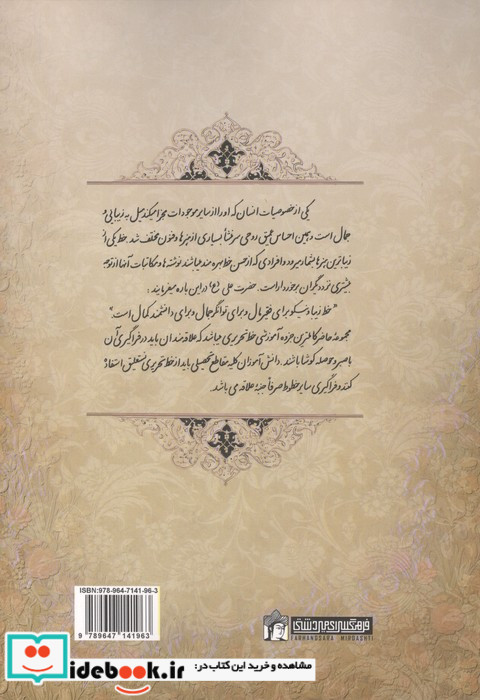 یکی از خصوصیات انسان که او را از سایر موجودات مجزا میکند میل به زیبایی و
جمال است و همین احساس عمیق روحی سرمنشأ بسیاری از هنرها و فنون مختلف شد. خط یکی از
زیباترین هنرها بشمار میرود و افرادی که از حسن خط بهره مند میباشند نوشته ها و مکاتبات آنها از توجه
بیشتری نزد دیگران برخوردار است. حضرت علی (ع) در این باره میفرمایند:
"خط زیبا و نیکو برای فقیر مال و برای توانگر جمال و برای دانشمند کمال است"
مجموعه حاضر کاملترین جزوه آموزشی خط تحریری میباشد که علاقمندان باید در فراگیری آن
با صبر و حوصله کوشا باشند. دانش آموزان کلیه مقاطع تحصیلی باید از خط تحریری نستعلیق استفاده
کنند و فراگیری سایر خطوط صرفاً جنبه علاقه می باشد.
ISBN:978-964-7141-96-3
9 789647 141963
فرهنگسرای میردشتی
FARHANGSARA MIRDASHTI
مشاهده و خرید این کتاب در:
idebook.ir